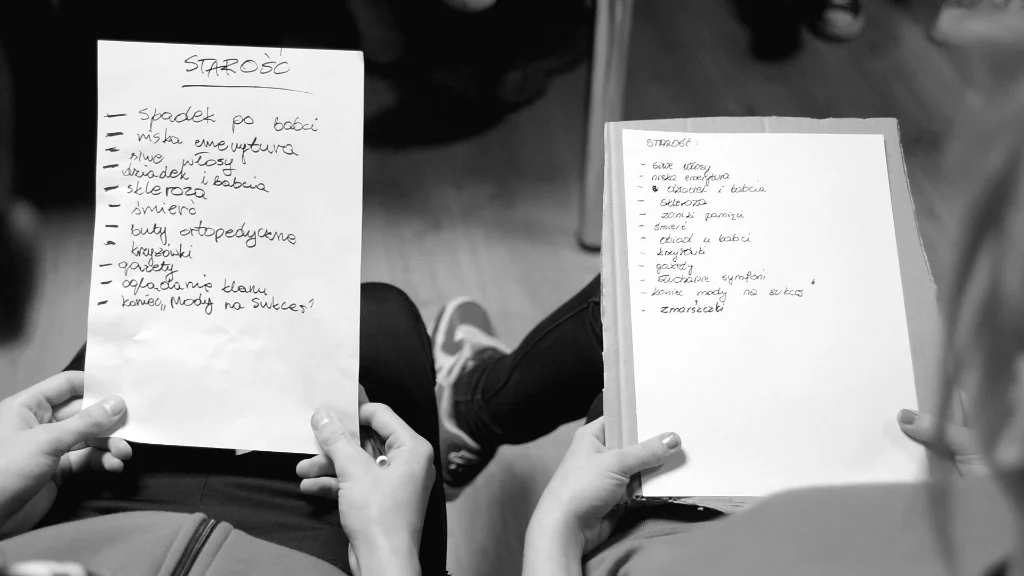 STAROŚĆ
- spadek po babci
- niska emerytura
- siwe włosy
- dziadek i babcia
- skleroza
- śmierć
- buty ortopedyczne
- krzyżówki
- gazety
- oglądanie klanu
- koniec „Mody na sukces"
STAROŚĆ:
- siwe włosy
- niska emerytura
- dziadek i babcia
- skleroza
- zaniki pamięci
- śmierć
- obiad u babci
- krzyżówki
- gazety
- słuchanie symfonii
- koniec mody na sukces
- zmarszczki